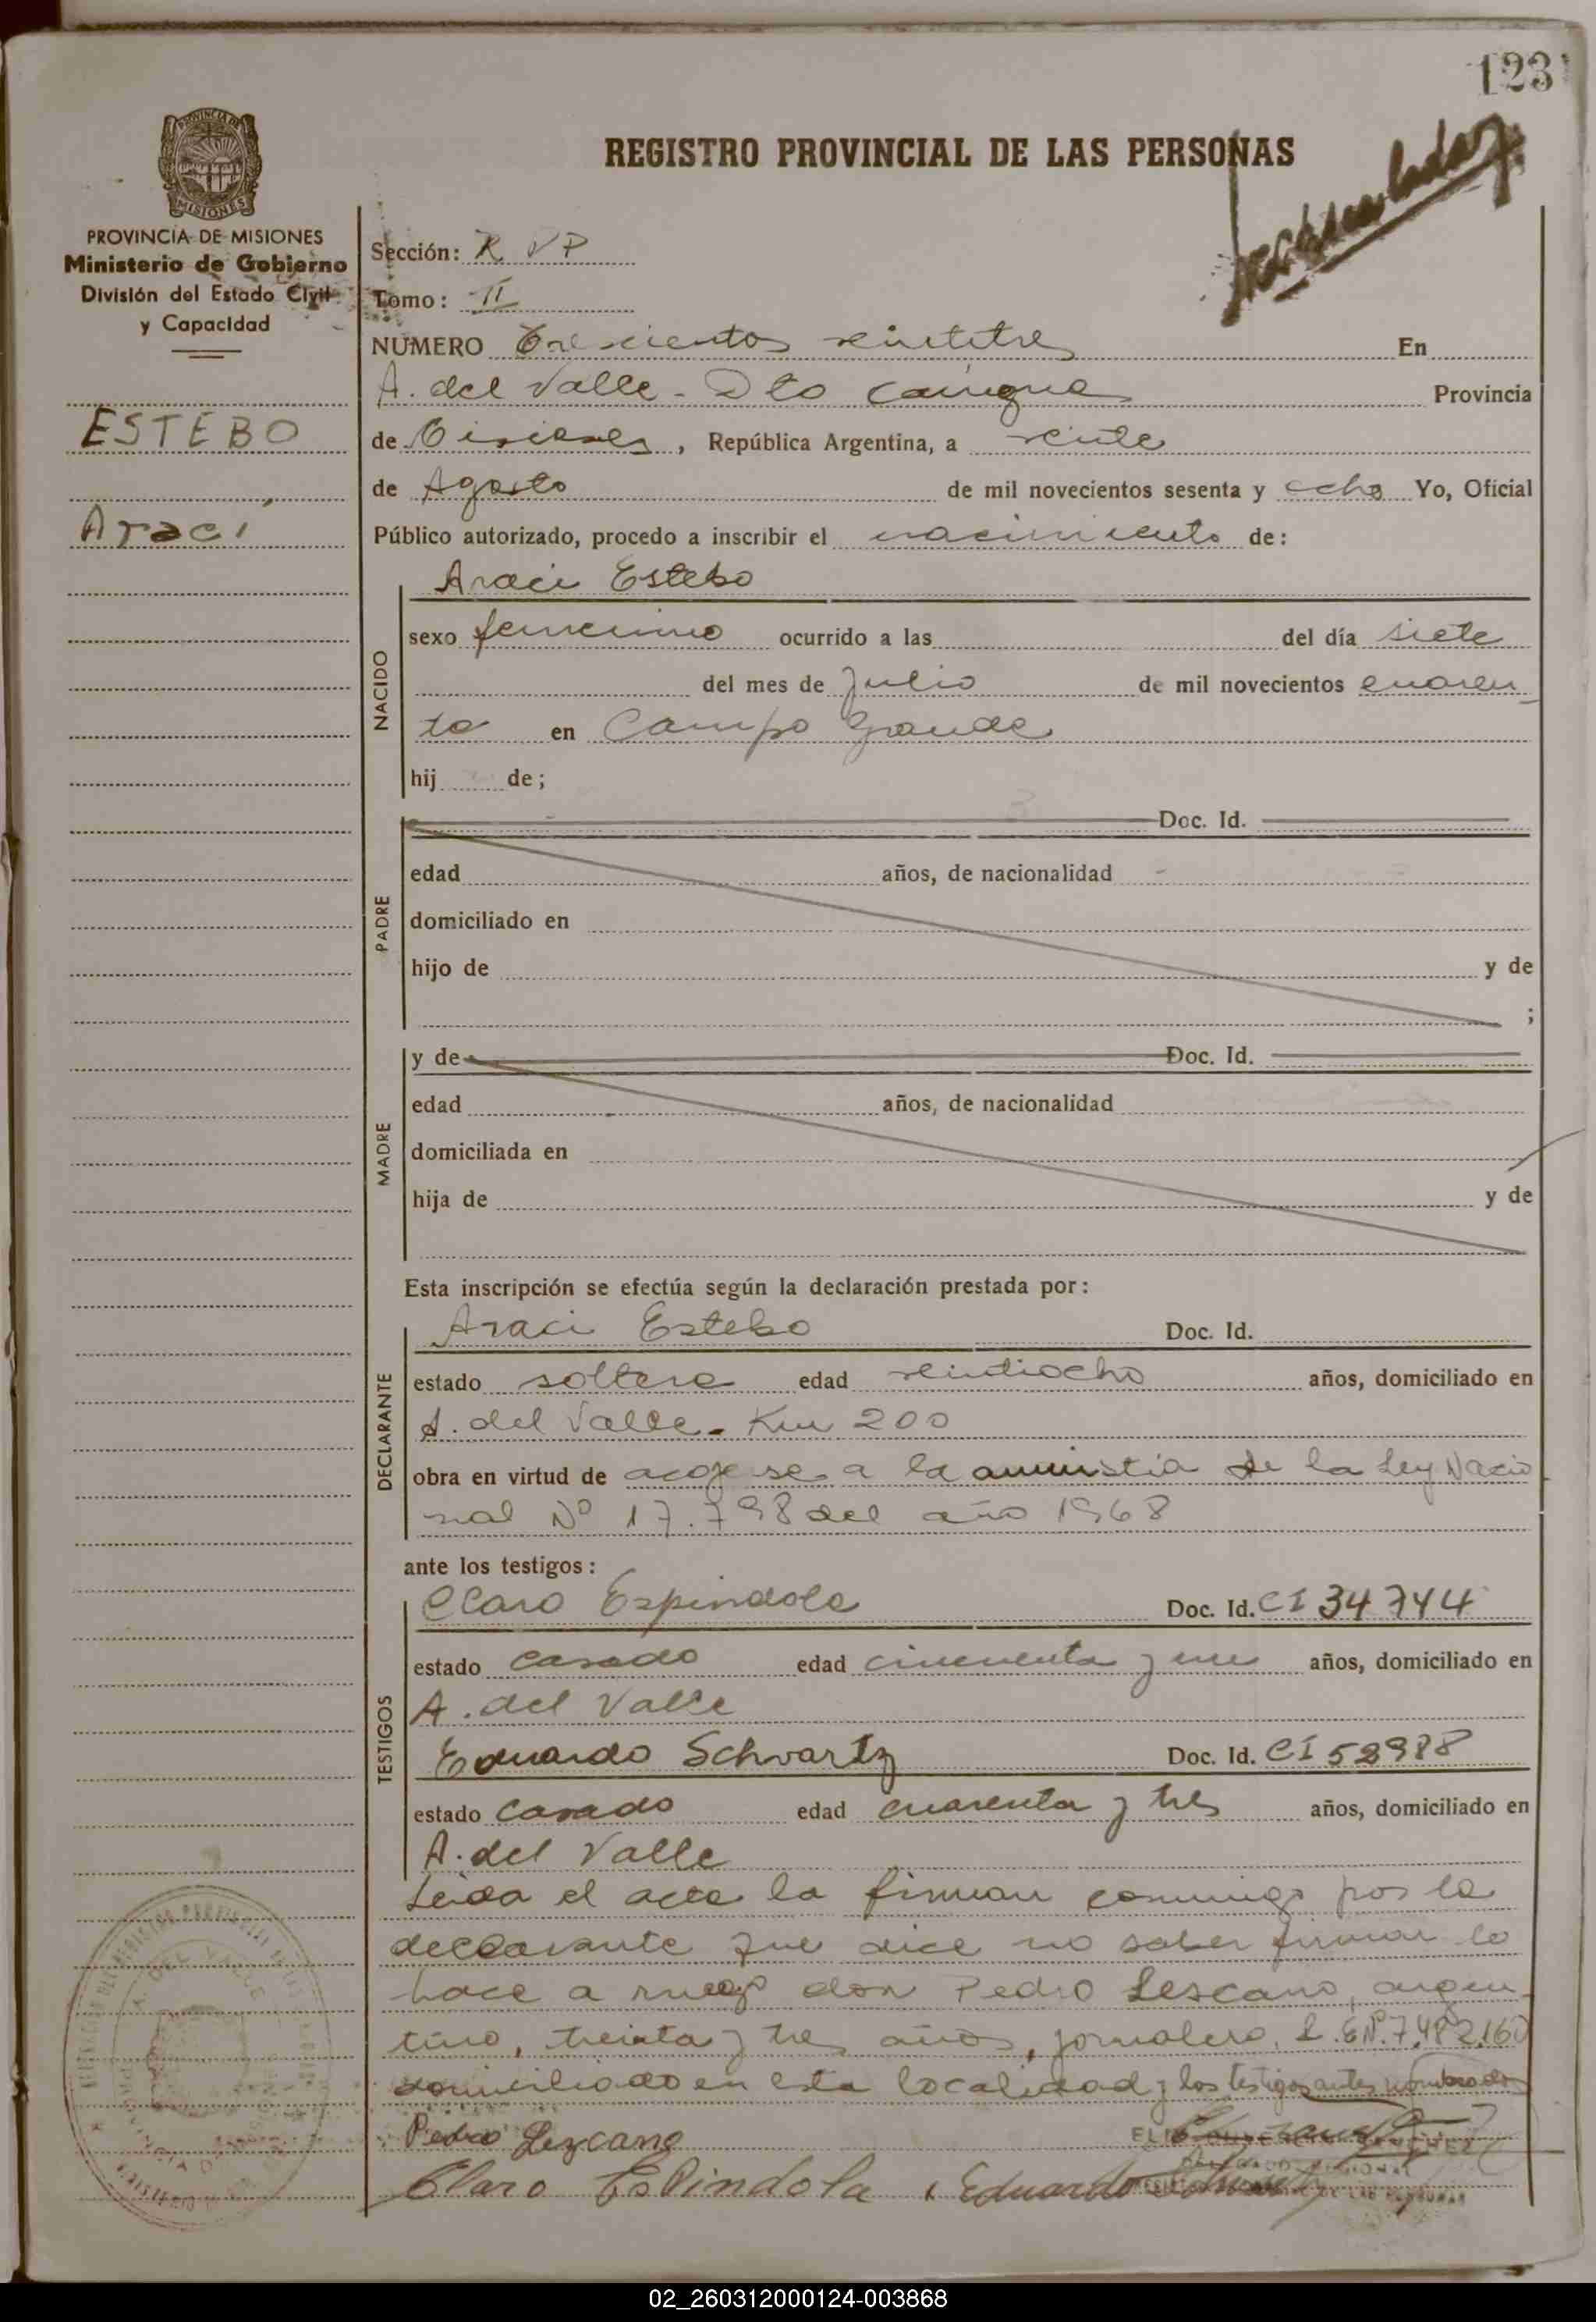 123
REGISTRO PROVINCIAL DE LAS PERSONAS
PROVINCIA DE MISIONES
PROVINCIA DE MISIONES
Ministerio de Gobierno
División del Estado Civil
y Capacidad
ESTEBO
Aracì
Sección: R V P
Tomo: II
NUMERO Trescientos veintitres En
A. del Valle - Dto Cainguas Provincia
de Misiones, República Argentina, a veinte
de Agosto de mil novecientos sesenta y ocho Yo, Oficial
Público autorizado, procedo a inscribir el nacimiento de:
NACIDO
Araci Estebo
sexo femenino ocurrido a las del día siete
del mes de Julio de mil novecientos cuaren
ta en Campo Grande
hij de;
PADRE
Doc. Id.
edad años, de nacionalidad
domiciliado en
hijo de y de
;
MADRE
y de Doc. Id.
edad años, de nacionalidad
domiciliada en
hija de y de
Esta inscripción se efectúa según la declaración prestada por:
DECLARANTE
Araci Estebo Doc. Id.
estado soltera edad veintiocho años, domiciliado en
A. del Valle - Km 200
obra en virtud de acojerse a la amnistia de la Ley Nacio
nal Nº 17.798 del año 1968
ante los testigos:
TESTIGOS
Claro Espindola Doc. Id. CI 34744
estado casado edad cincuenta y un años, domiciliado en
A. del Valle
Eduardo Schvartz Doc. Id. CI 58988
estado casado edad cuarenta y tres años, domiciliado en
A. del Valle
Leida el acta la firman conmigo por la
declarante que dice no saber firmar lo
hace a ruego don Pedro Lescano, argen
tino, treinta y tres años, jornalero, L.E Nº 7.482.160
domiciliado en esta localidad y los testigos antes nombrados
Pedro Lezcano
Claro Espindola Eduardo
02_260312000124-003868